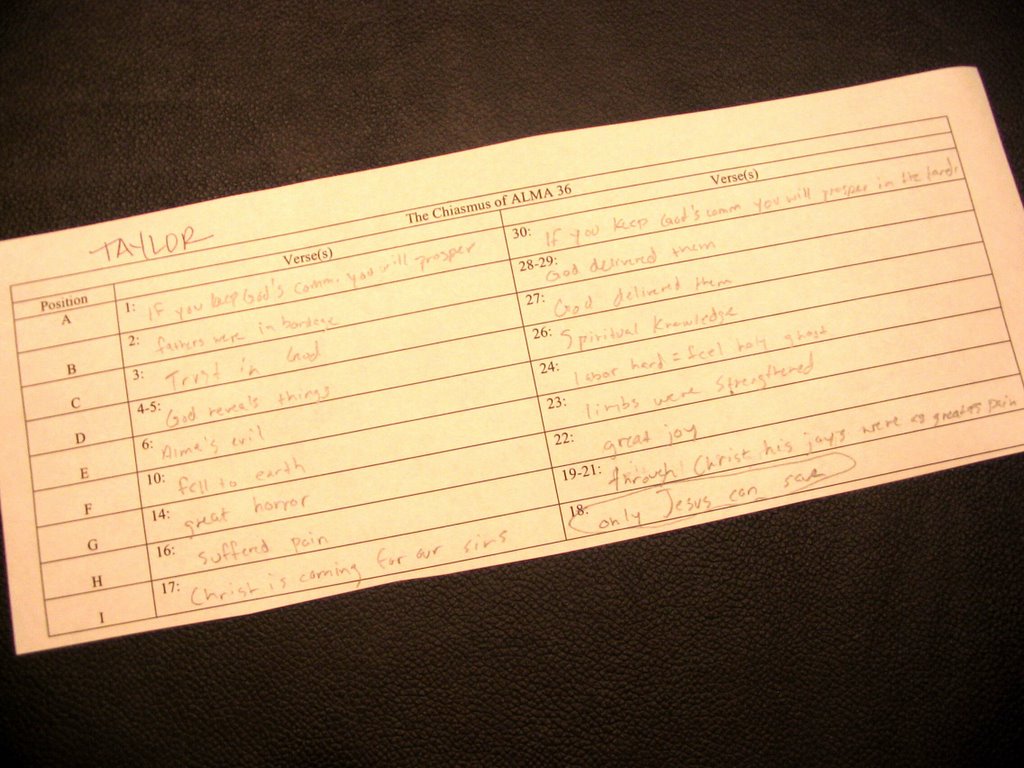 TAYLOR
The Chiasmus of ALMA 36
Position Verse(s) Verse(s)
A 1: IF you keep God's comm. you will prosper 30: If you keep God's comm you will prosper in the land.
B 2: fathers were in bondage 28-29: God delivered them
C 3: Trust in God 27: God delivered them
D 4-5: God reveals things 26: Spiritual Knowledge
E 6: Alma's evil 24: labor hard = feel holy ghost
F 10: fell to earth 23: limbs were strengthened
G 14: great horror 22: great joy
H 16: suffered pain 19-21: through Christ his joys were as great as pain
I 17: Christ is coming for our sins 18: only Jesus can save